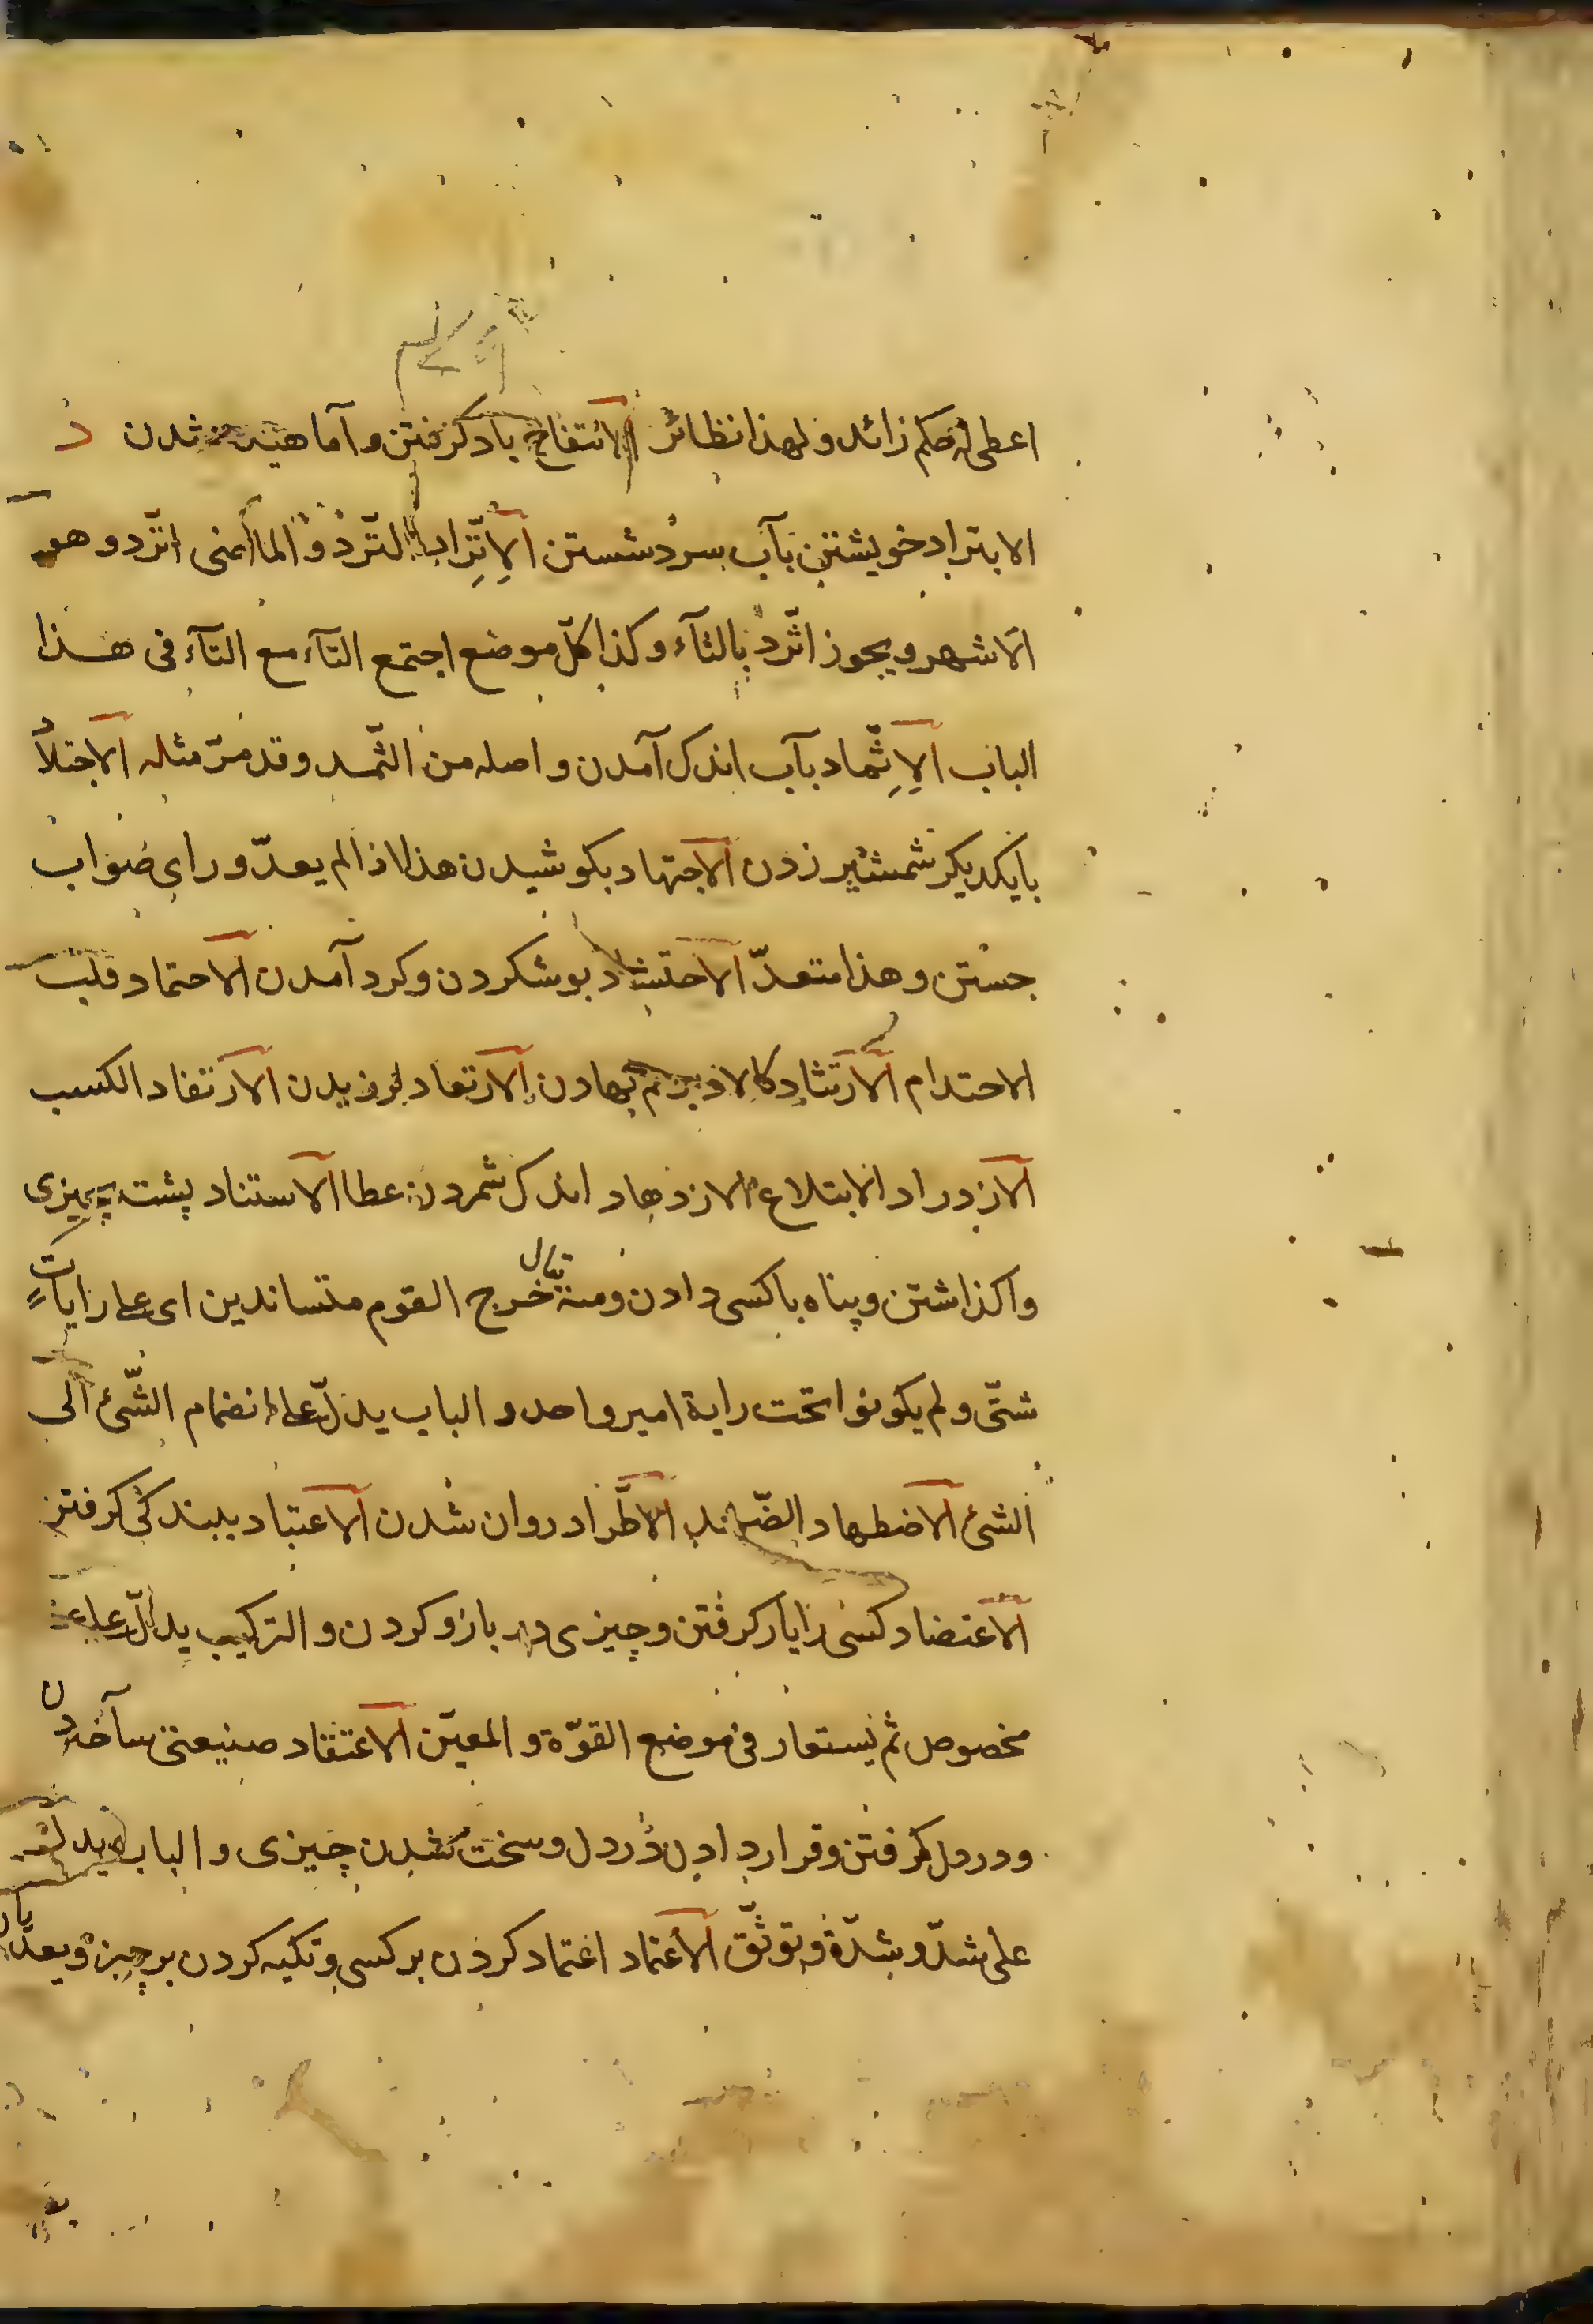 اعطى له حكم زائد ولهذا نظائر الانتفاخ باد كرفتن و آماهيده شدن د
الابتراد خويشتن بآب سرد شستن الاِتِّراد الثرد و الماضى اتّرد و هو
الاشهر و يجوز اثّرد بالثآء و كذا كلّ موضع اجتمع الثآء مع التآء فى هذا
الباب الاِثِّماد بآب اندك آمدن و اصله من الثّمد و قد مرّ مثله الاجتلاد
بايكديكر شمشير زدن الاجتهاد بكوشيدن هذا اذا لم يعدّ و راى صواب
جستن و هذا متعدّ الاحتشاد بوشكردن و كرد آمدن الاحتماد قلب
الاحتدام الارتثاد كالا نهادن الارتعاد لرزيدن الارتفاد الكسب
الازدراد الابتلاع الازدهاد اندك شمردن عطا الاستناد پشت بچيزى
واكذاشتن و پناه باكسى دادن و منه يقال خرج القوم متساندين اى على رايات
شتّى و لم يكونوا تحت راية امير واحد و الباب يدلّ على انضمام الشّئ الى
الشئ الاضطهاد الاطّراد روان شدن الاعتباد ببندكى كرفتن
الاعتضاد كسى را يار كرفتن و چيزى در بازو كردن و التركيب يدلّ على
مخصوص ثم يستعار فى موضع القوّة و المعين الاعتقاد صنيعتى ساختن
و در دل كرفتن و قرار دادن در دل و سخت شدن چيزى و الباب يدلّ
على شدّ و شدّة و توثّق الاعتماد اعتماد كردن بر كسى و تكيه كردن بر چيز و يعدّ